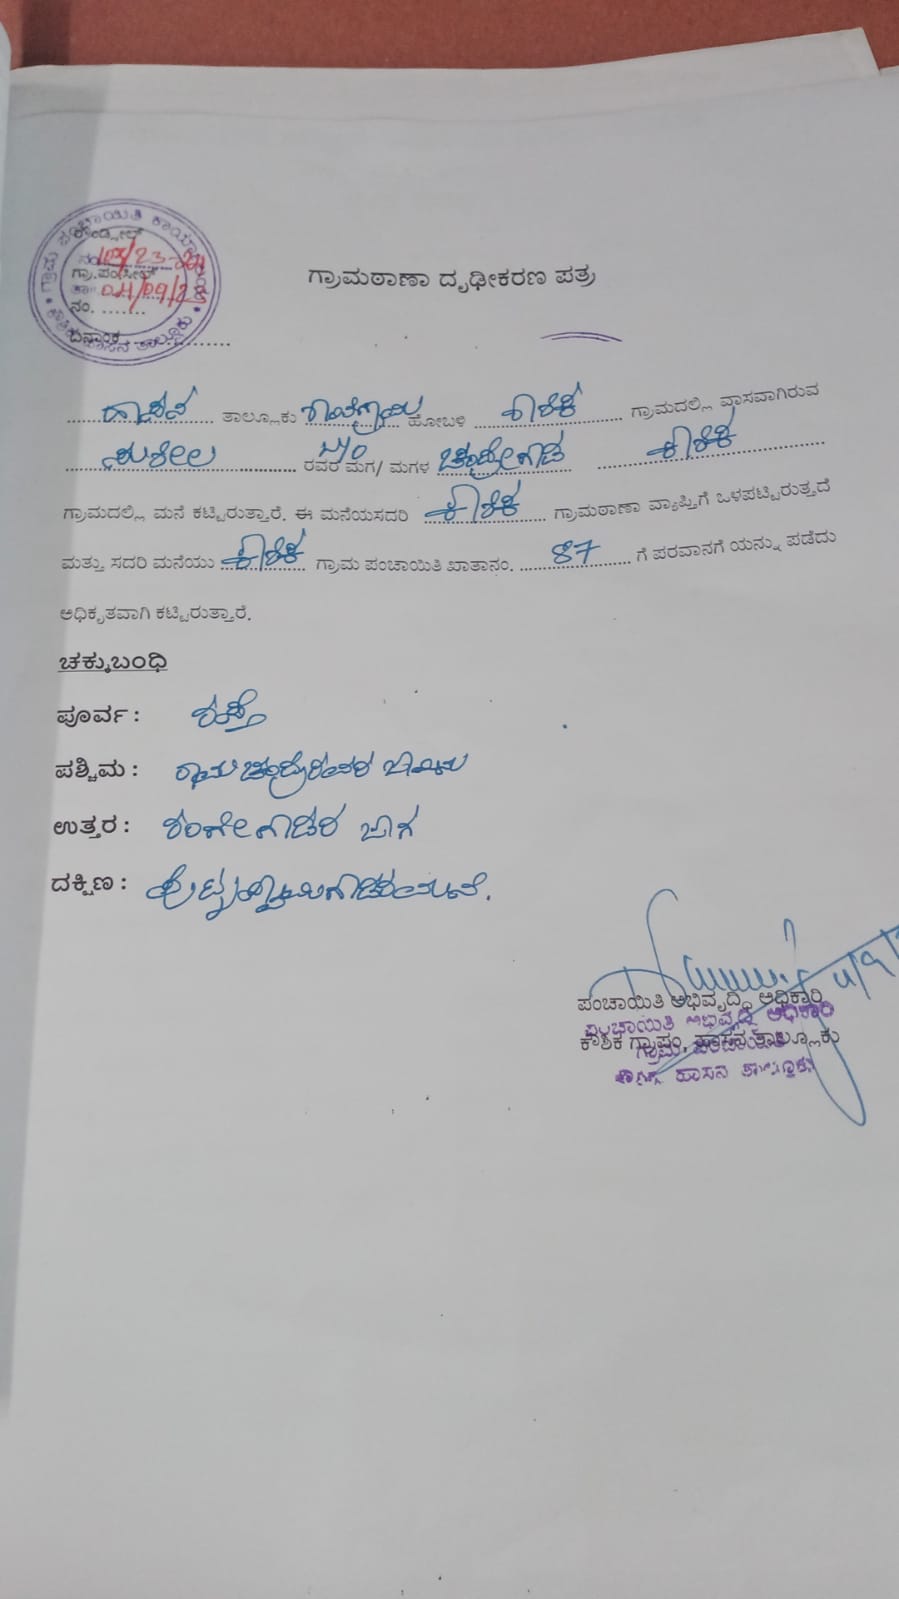 ಗ್ರಾಮ ಪಂಚಾಯಿತಿ ಕಾರ್ಯಾಲಯ
ಹಾಸನ ತಾಲ್ಲೂಕು
ರೌಂಡ್ಸೀಲ್
ನಂ 103/23-24
ಗ್ರಾ.ಪಂ.ಸೀಲ್
ತಾ: 04/09/23
ನಂ. .......
ದಿನಾಂಕ ....................
ಗ್ರಾಮಠಾಣಾ ದೃಢೀಕರಣ ಪತ್ರ
ಹಾಸನ ತಾಲ್ಲೂಕು ಹೋಬಳಿ ಕೌಶಿಕ ಗ್ರಾಮದಲ್ಲಿ ವಾಸವಾಗಿರುವ
ಸುಶೀಲ ರವರ ಮಗ/ ಮಗಳ ಚಂದ್ರೇಗೌಡ ಕೌಶಿಕ
ಗ್ರಾಮದಲ್ಲಿ ಮನೆ ಕಟ್ಟಿರುತ್ತಾರೆ. ಈ ಮನೆಯಸದರಿ ಕೌಶಿಕ ಗ್ರಾಮಠಾಣಾ ವ್ಯಾಪ್ತಿಗೆ ಒಳಪಟ್ಟಿರುತ್ತದೆ
ಮತ್ತು ಸದರಿ ಮನೆಯು ಕೌಶಿಕ ಗ್ರಾಮ ಪಂಚಾಯಿತಿ ಖಾತಾನಂ. 87 ಗೆ ಪರವಾನಗೆ ಯನ್ನು ಪಡೆದು
ಅಧಿಕೃತವಾಗಿ ಕಟ್ಟಿರುತ್ತಾರೆ.
ಚಕ್ಕುಬಂಧಿ
ಪೂರ್ವ : ರಸ್ತೆ
ಪಶ್ಚಿಮ : ರಾಮಚಂದ್ರರವರ
ಉತ್ತರ : ರಂಗೇಗೌಡರ ಜಾಗ
ದಕ್ಷಿಣ : ಪುಟ್ಟಸ್ವಾಮಿಗೌಡರಮನೆ.
4/9/
ಪಂಚಾಯಿತಿ ಅಭಿವೃದ್ಧಿ ಅಧಿಕಾರಿ
ಪಂಚಾಯಿತಿ ಅಭಿವೃದ್ಧಿ ಅಧಿಕಾರಿ
ಕೌಶಿಕ ಗ್ರಾಪಂ, ಹಾಸನ ತಾಲ್ಲೂಕು
ಗ್ರಾಮ ಪಂಚಾಯಿತಿ
ಹಾಸನ ತಾಲ್ಲೂಕು